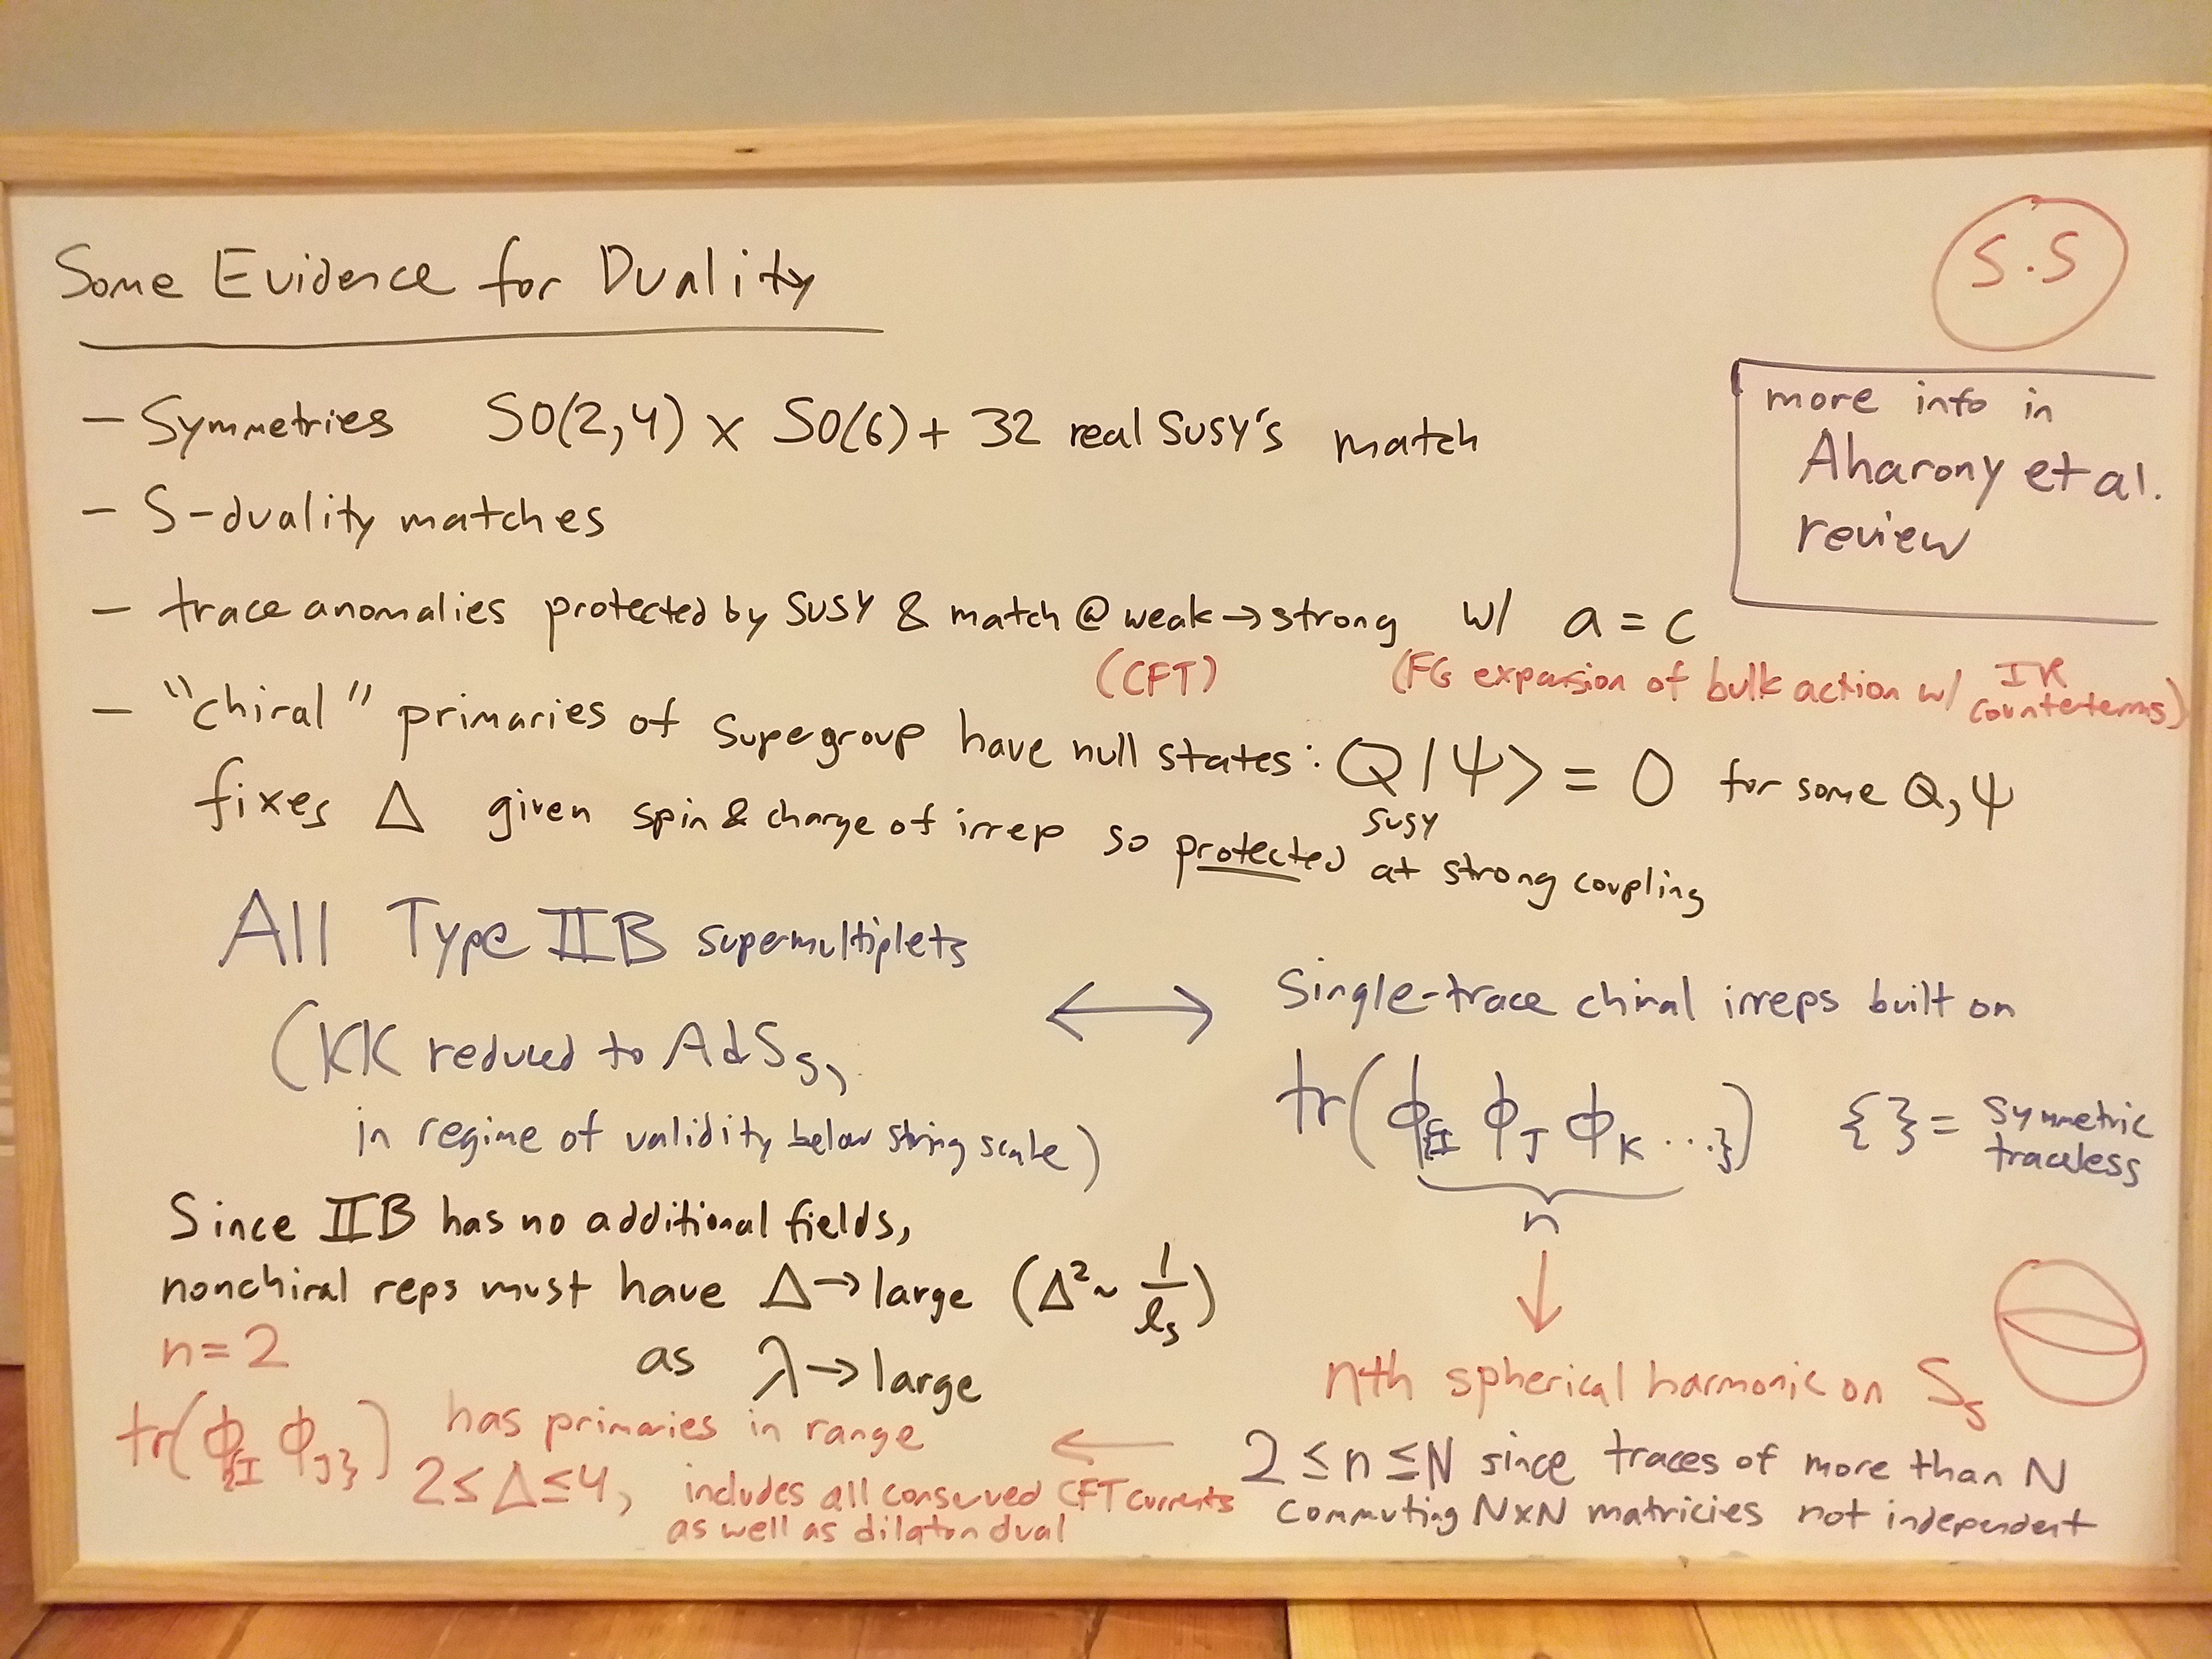 Some Evidence for Duality
S.S
more info in
Aharony et al.
review
– Symmetries SO(2,4) × SO(6) + 32 real SUSY's match
– S-duality matches
– trace anomalies protected by SUSY & match @ weak → strong w/ a = c
(CFT) (FG expansion of bulk action w/ IR counterterms)
– "chiral" primaries of supergroup have null states: Q|Ψ> = 0 for some Q, Ψ
SUSY
fixes Δ given spin & charge of irrep so protected at strong coupling
All Type IIB supermultiplets
(KK reduced to AdS₅,
in regime of validity below string scale)
↔
Single-trace chiral irreps built on
tr(ϕ_{I ϕ_J ϕ_K ...}) { } = symmetric
traceless
n
↓
nth spherical harmonic on S₅
2 ≤ n ≤ N since traces of more than N
commuting N×N matricies not independent
Since IIB has no additional fields,
nonchiral reps must have Δ → large (Δ² ~ 1/ℓₛ)
as λ → large
n = 2
tr(ϕ_{I ϕ_J}) has primaries in range ←
2 ≤ Δ ≤ 4, includes all conserved CFT currents
as well as dilaton dual